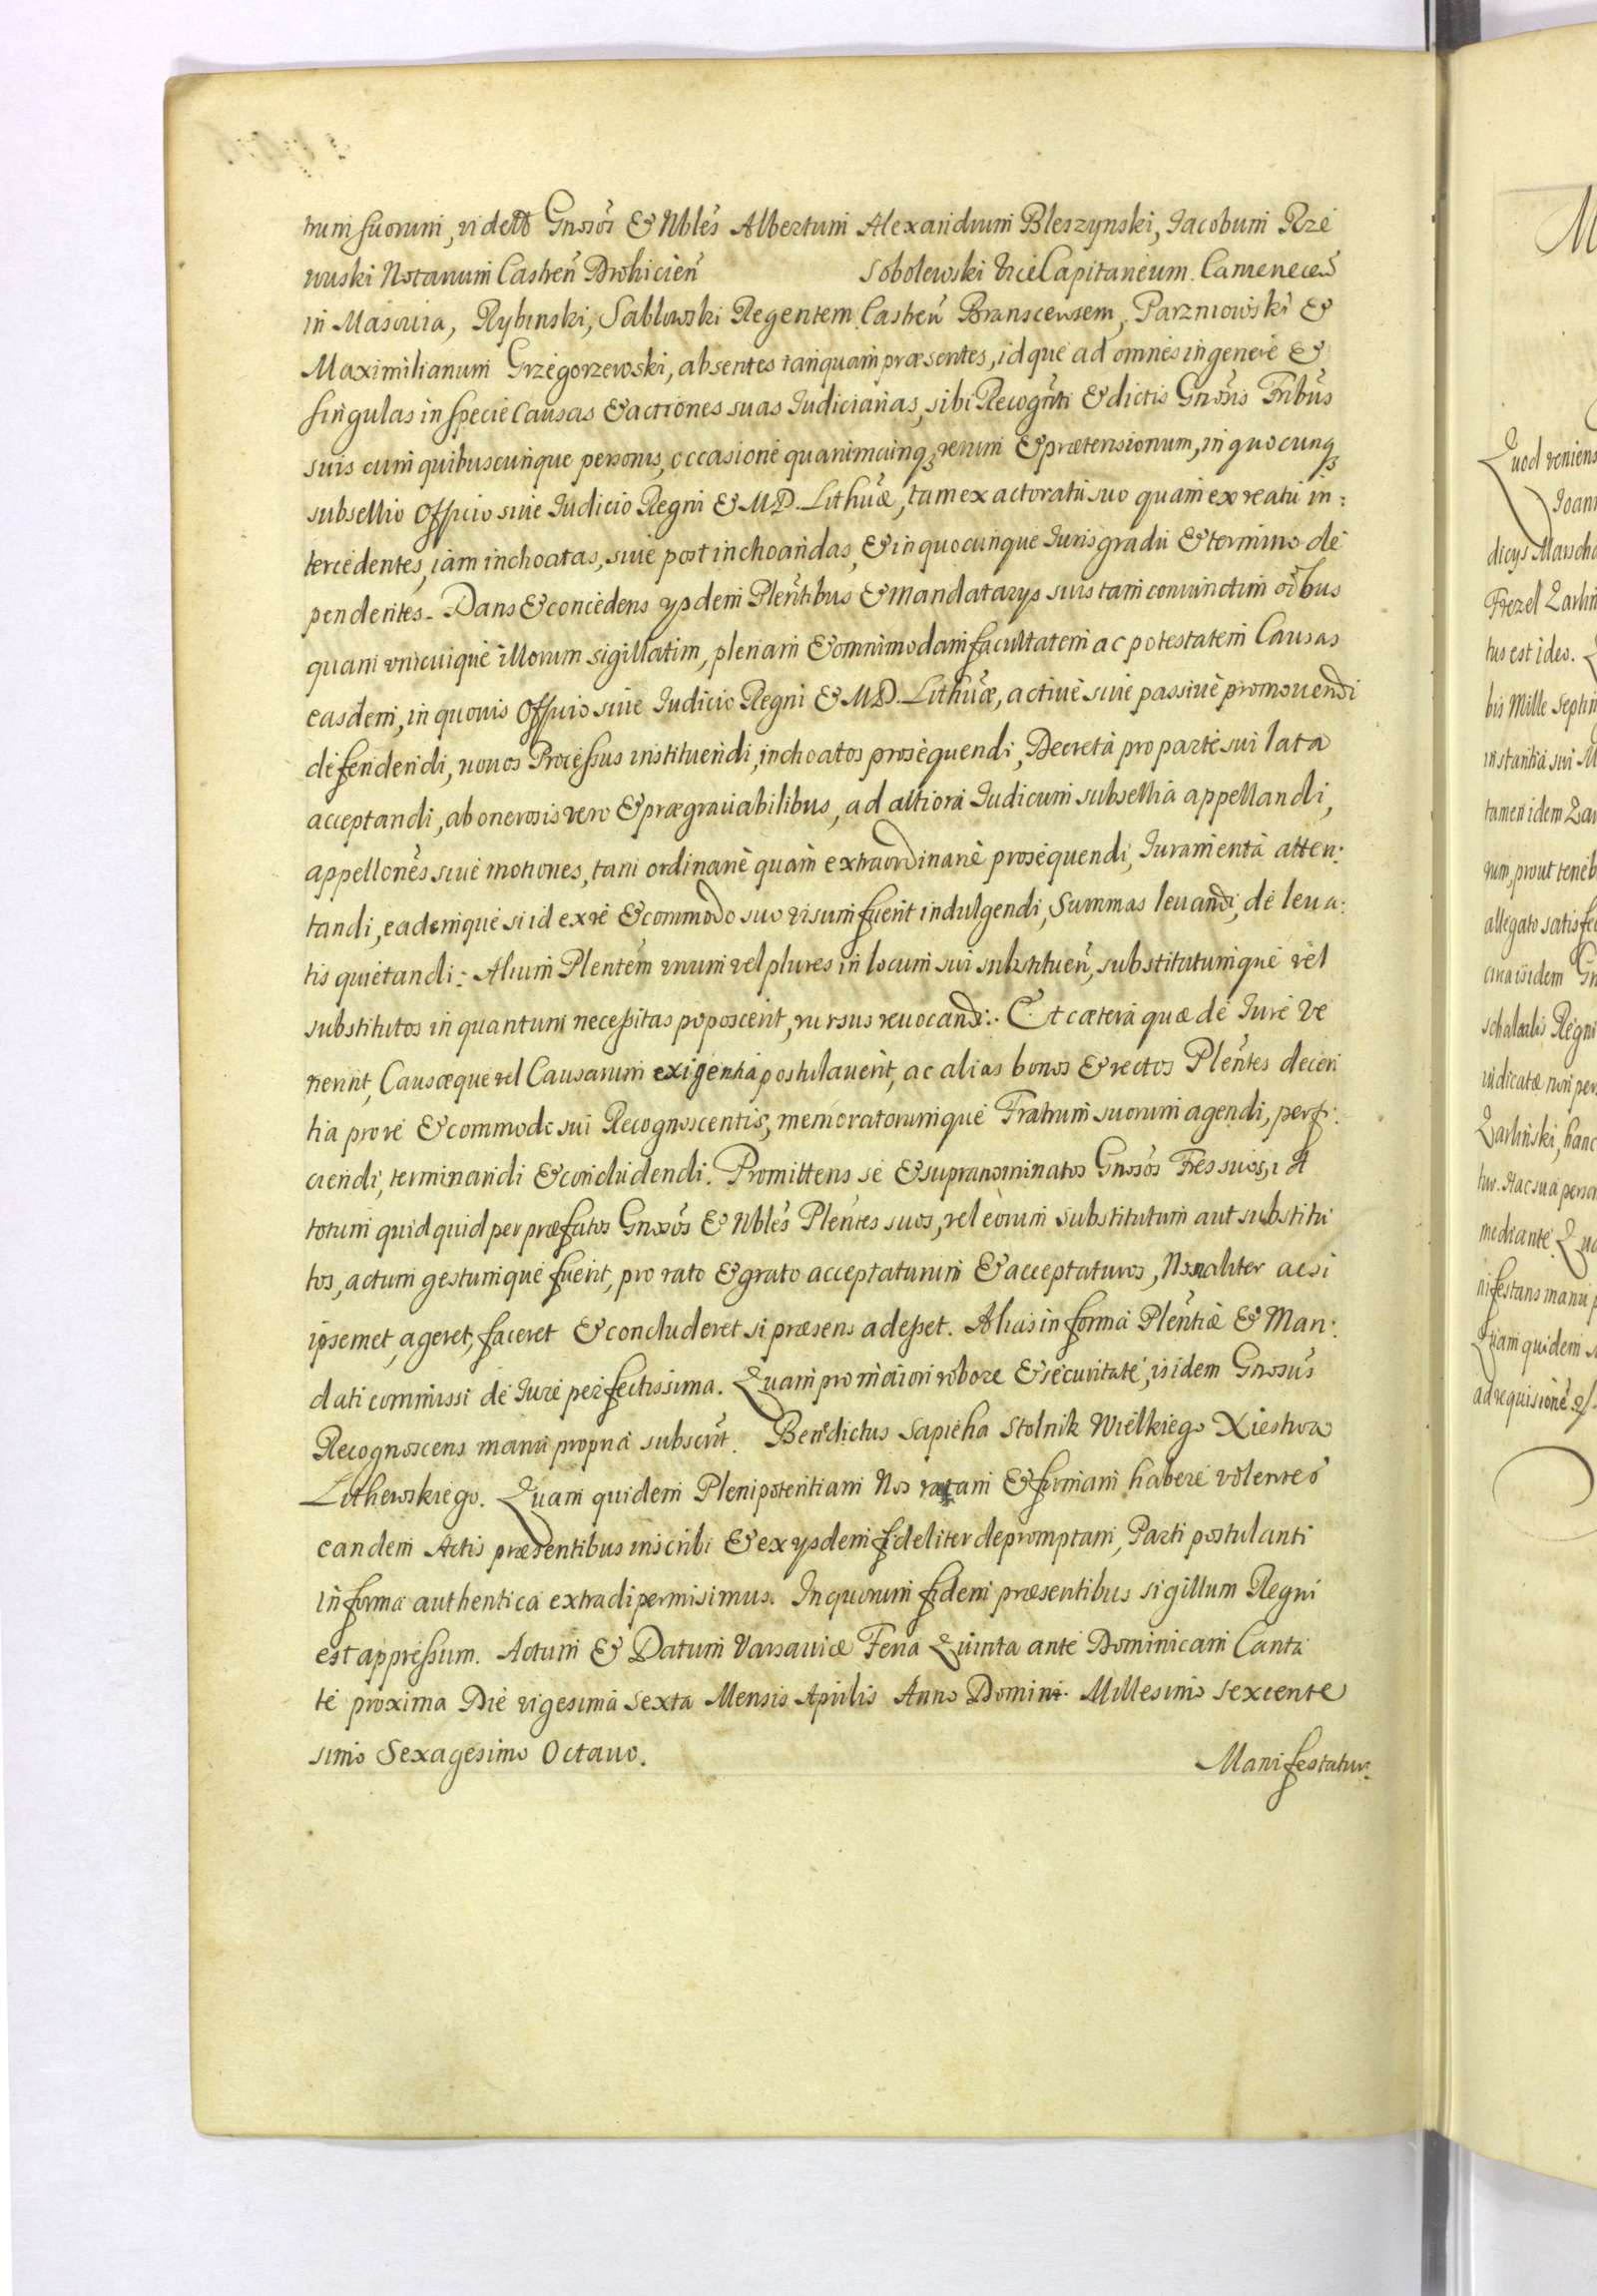 trum suorum, videlt Gnosos & Nbles Albertum Alexandrum Bleszynski, Jacobum Rze
wuski Notarium Castren Drohicien Sobolewski ViceCapitaneum Camenecen
in Masovia, Rybinski, Sablowski Regentem Castren Branscensem, Parzniowski &
Maximilianum Grzegorzewski, absentes tanquam præsentes, idque ad omnes in genere &
singulas in specie Causas & actiones suas Judiciarias, sibi Recognti & dictis Gnosis Fribus
suis cum quibuscunque personis, occasione quarumcunq3 rerum & prætensionum, in quocunq3
subsellio Officio sive Judicio Regni & M.D. Lithuæ, tam ex actoratu suo quam ex reatu in:
tercedentes, iam inchoatas, sive post inchoandas, & in quocunque Juris gradu & termino de
pendentes. Dans & concedens ysdem Plentibus & Mandatarys suis tam coniunctim oibus
quam vnicuique illorum sigillatim, plenam & omnimodam facultatem ac potestatem Causas
easdem, in quovis Officio sive Judicio Regni & M.D. Lithuæ, active sive passive promouendi
defendendi, nouos Processus instituendi, inchoatos prosequendi, Decreta pro parte sui lata
acceptandi, ab onerosis vero & prægravabilibus, ad altiora Judicum subsellia appellandi,
appellones sive motiones, tam ordinarie quam extraordinarie prosequendi, Juramenta atten:
tandi, eademque si id ex re & commodo suo visum fuerit indulgendi, Summas levandi, de leva:
tis quietandi: Alium Plentem vnum vel plures in locum sui substituen, substitutumque vel
substitutos in quantum necessitas poposcerit, rursus revocandi. Et cætera quæ de Jure ve
nerint, Causæque vel Causarum exigentia postulaverit, ac alias bonos & rectos Plentes decen
tia pro re & commodo sui Recognoscentis, memoratorumque Fratrum suorum agendi, perfi:
ciendi, terminandi & concludendi. Promittens se & supranominatos Gnosos Fres suos, id
totum quidquid per præfatos Gnosos & Nbles Plentes suos, vel eorum substitutum aut substitu
tos, actum gestumque fuerit, pro rato & grato acceptaturum & accepturos, Non aliter acsi
ipsemet, ageret, faceret & concluderet si præsens adesset. Alias in forma Plentiæ & Man:
dati commissi de Jure perfectissima. Quam pro maiori robore & securitate, isidem Gnosus
Recognoscens manu propria subscrit. Benedictus Sapieha Stolnik Wielkiego Xiestwa
Lithewskiego. Quam quidem Plenipotentiam Nos ratam & firmam habere volentes
eandem Actis præsentibus inscribi & ex ysdem fideliter depromptam, Parti postulanti
in forma authentica extradi permisimus. In quorum fidem præsentibus sigillum Regni
est appressum. Actum & Datum Varsaviæ Feria Quinta ante Dominicam Canta
te proxima Die vigesima Sexta Mensis Aprilis Anno Domini Millesimo Sexcente
simo Sexagesimo Octavo.
Manifestatur.
M
Quod veniens
Joann
dicys Marscha
Frezel Zarlin
tus est ideo.
bis Mille Septin
instantia sui M
tamen idem Zar
rum, prout teneb
allegato satisfe
cina isidem Gn
schalcalis Regni
indicatæ non per
Zarlinski, hanc
tur. Hac sua person
mediante. Qua
nifestans manu p
Quam quidem
ad requisione